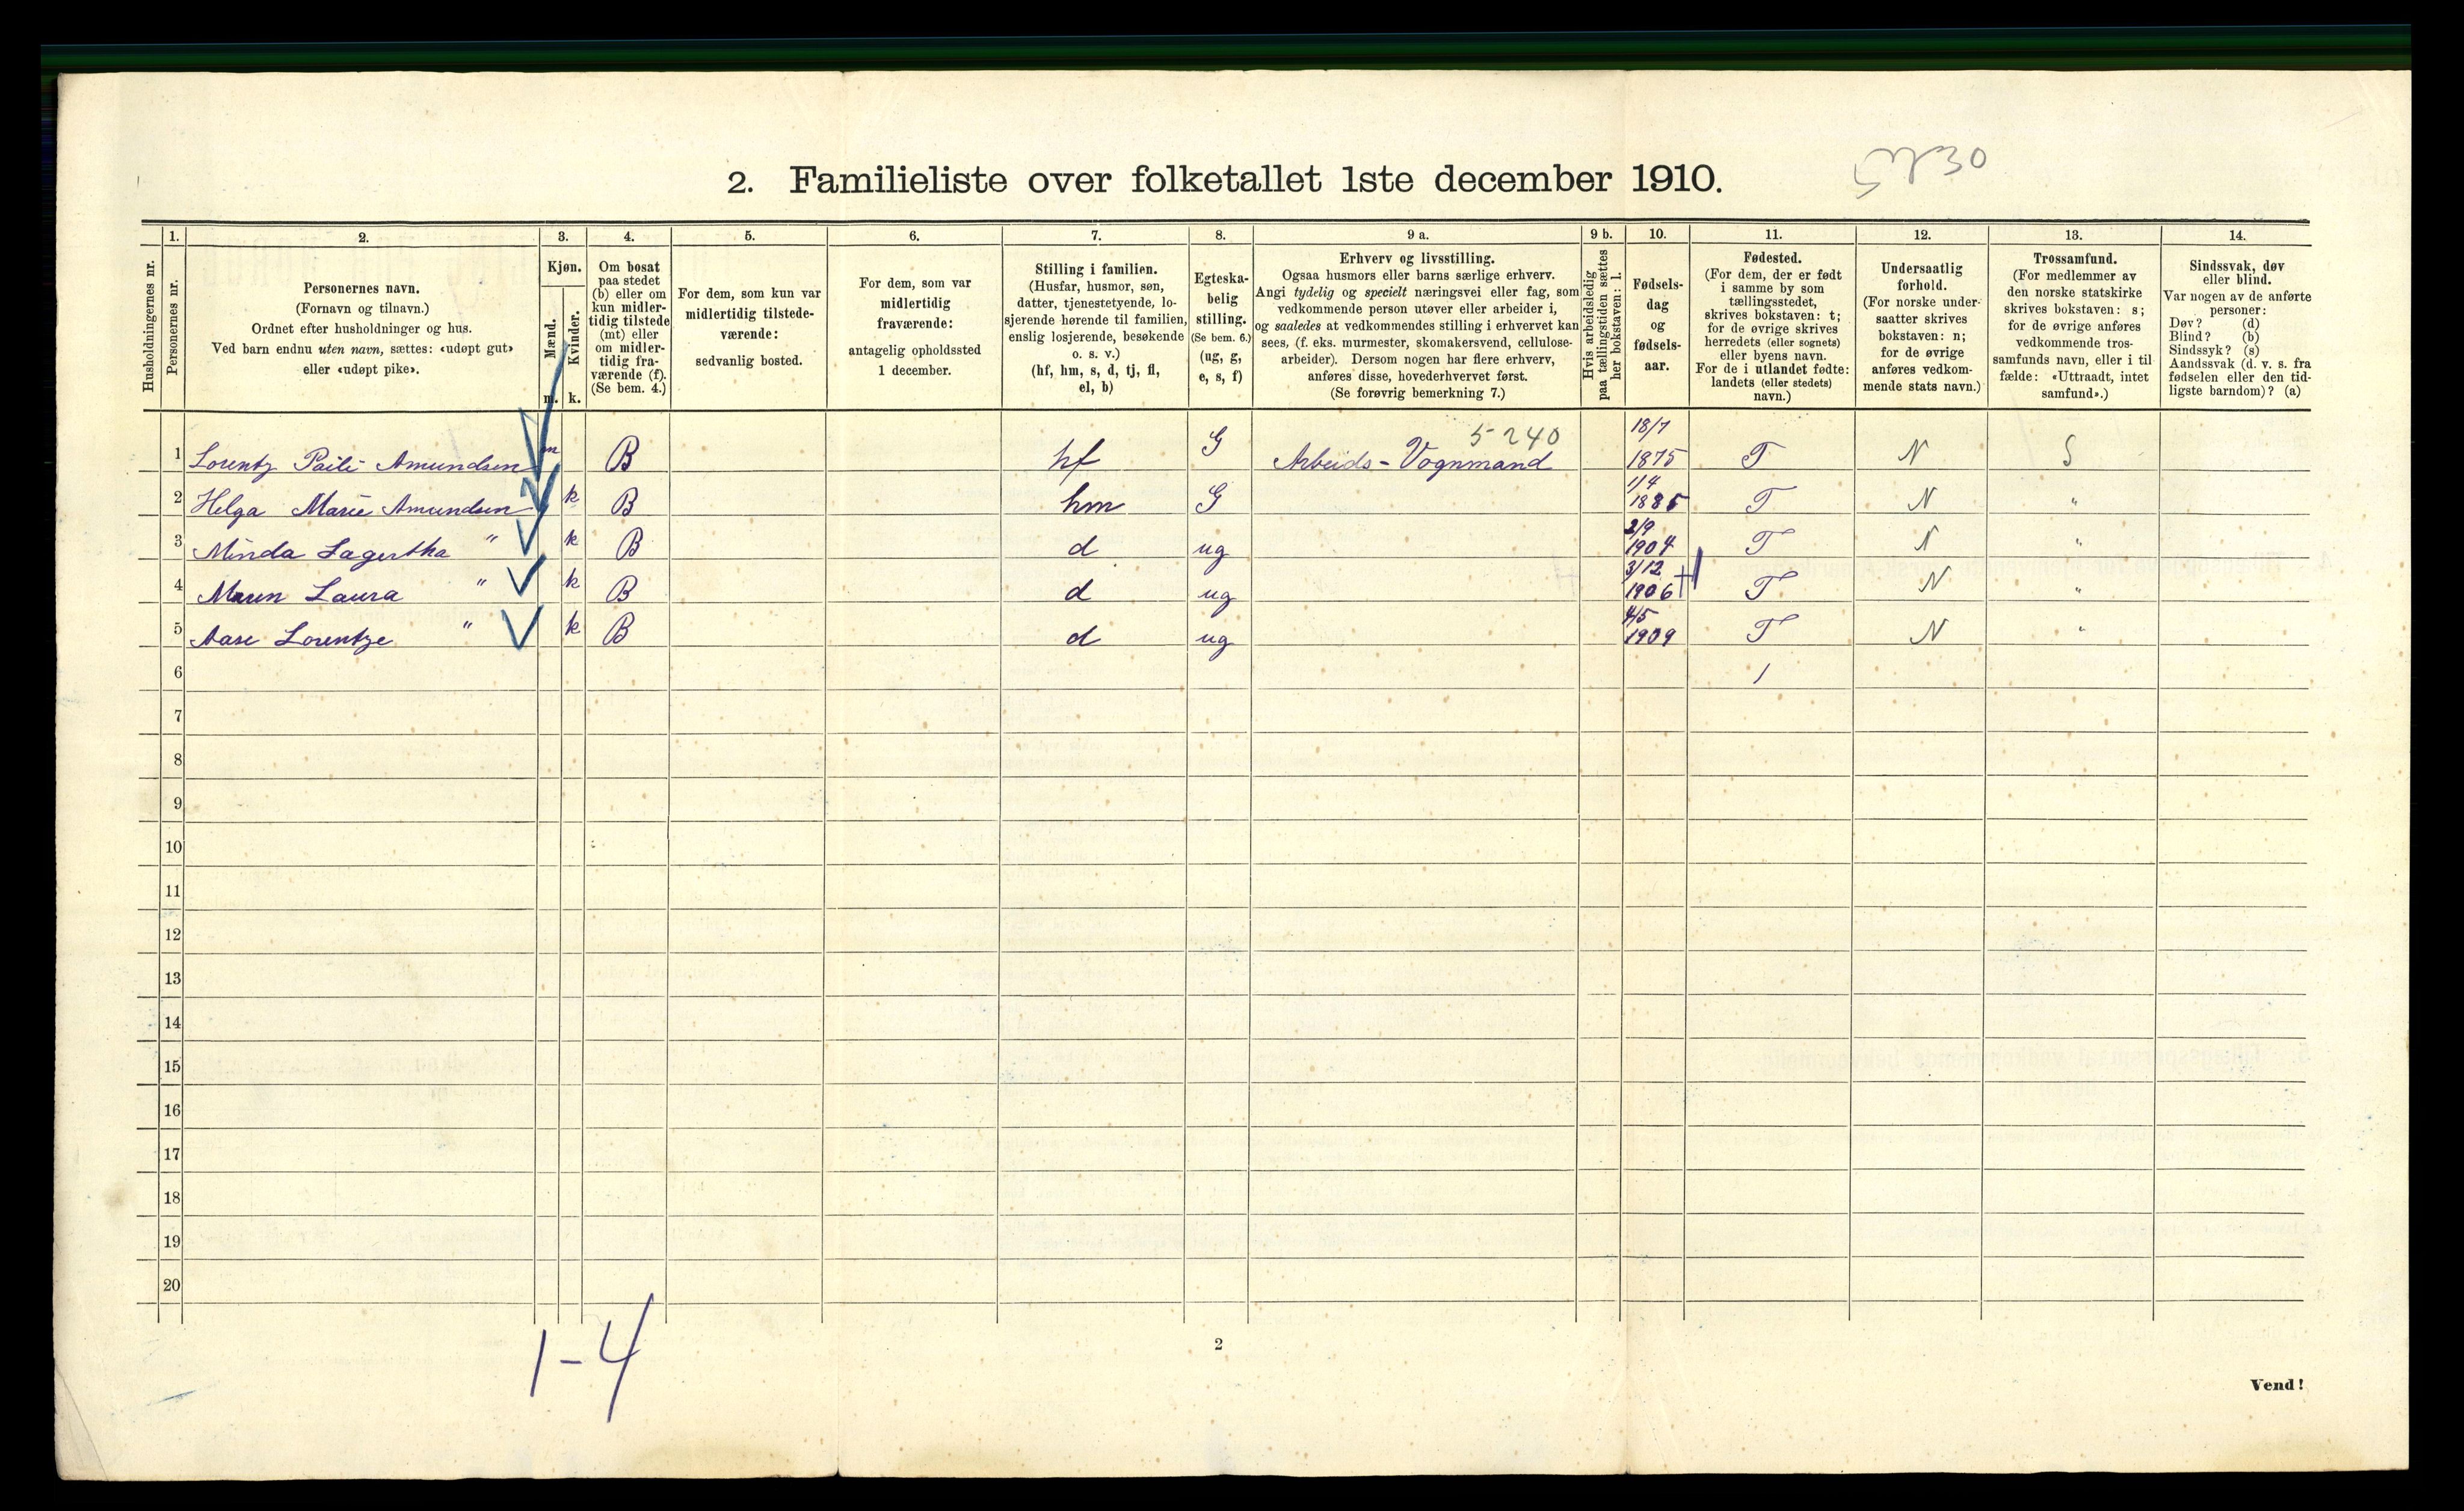 5230
2. Familieliste over folketallet 1ste december 1910.
Husholdningernes nr.
1.
Personernes nr.
2.
Personernes navn.
(Fornavn og tilnavn.)
Ordnet efter husholdninger og hus.
Ved barn endnu uten navn, sættes: «udøpt gut»
eller «udøpt pike».
3.
Kjøn.
Mænd.
Kvinder.
m. k.
4.
Om bosat
paa stedet
(b) eller om
kun midler-
tidig tilstede
(mt) eller
om midler-
tidig fra-
værende (f).
(Se bem. 4.)
5.
For dem, som kun var
midlertidig tilstede-
værende:
sedvanlig bosted.
6.
For dem, som var
midlertidig
fraværende:
antagelig opholdssted
1 december.
7.
Stilling i familien.
(Husfar, husmor, søn,
datter, tjenestetyende, lo-
sjerende hørende til familien,
enslig losjerende, besøkende
o. s. v.)
(hf, hm, s, d, tj, fl,
el, b)
8.
Egteska-
belig
stilling.
(Se bem. 6.)
(ug, g,
e, s, f)
9 a.
Erhverv og livsstilling.
Ogsaa husmors eller barns særlige erhverv.
Angi tydelig og specielt næringsvei eller fag, som
vedkommende person utøver eller arbeider i,
og saaledes at vedkommendes stilling i erhvervet kan
sees, (f. eks. murmester, skomakersvend, cellulose-
arbeider). Dersom nogen har flere erhverv,
anføres disse, hovederhvervet først.
(Se forøvrig bemerkning 7.)
9 b.
Hvis arbeidsledig
paa tællingstiden sættes
her bokstaven: l.
10.
Fødsels-
dag
og
fødsels-
aar.
11.
Fødested.
(For dem, der er født
i samme by som
tællingsstedet,
skrives bokstaven: t;
for de øvrige skrives
herredets (eller sognets)
eller byens navn.
For de i utlandet fødte:
landets (eller stedets)
navn.)
12.
Undersaatlig
forhold.
(For norske under-
saatter skrives
bokstaven: n;
for de øvrige
anføres vedkom-
mende stats navn.)
13.
Trossamfund.
(For medlemmer av
den norske statskirke
skrives bokstaven: s;
for de øvrige anføres
vedkommende tros-
samfunds navn, eller i til-
fælde: «Uttraadt, intet
samfund».)
14.
Sindssvak, døv
eller blind.
Var nogen av de anførte
personer:
Døv? (d)
Blind? (b)
Sindssyk? (s)
Aandssvak (d. v. s. fra
fødselen eller den tid-
ligste barndom)? (a)
5240 18/7
1 Lorentz Amundsen m B hf G Arbeids-Vognmand 1875 T N S
1/4
2 Helga Marie Amundsen k B hm G 1885 T N "
2/9
3 Minda Lagertha " k B d ug 1904 T N "
3/12
4 Maren Laura " k B d ug 1906 T N "
4/5
5 Aase Lorentze " k B d ug 1909 T N "
6 1
7
8
9
10
11
12
13
14
15
16
17
18
19
20
1-4
2
Vend!